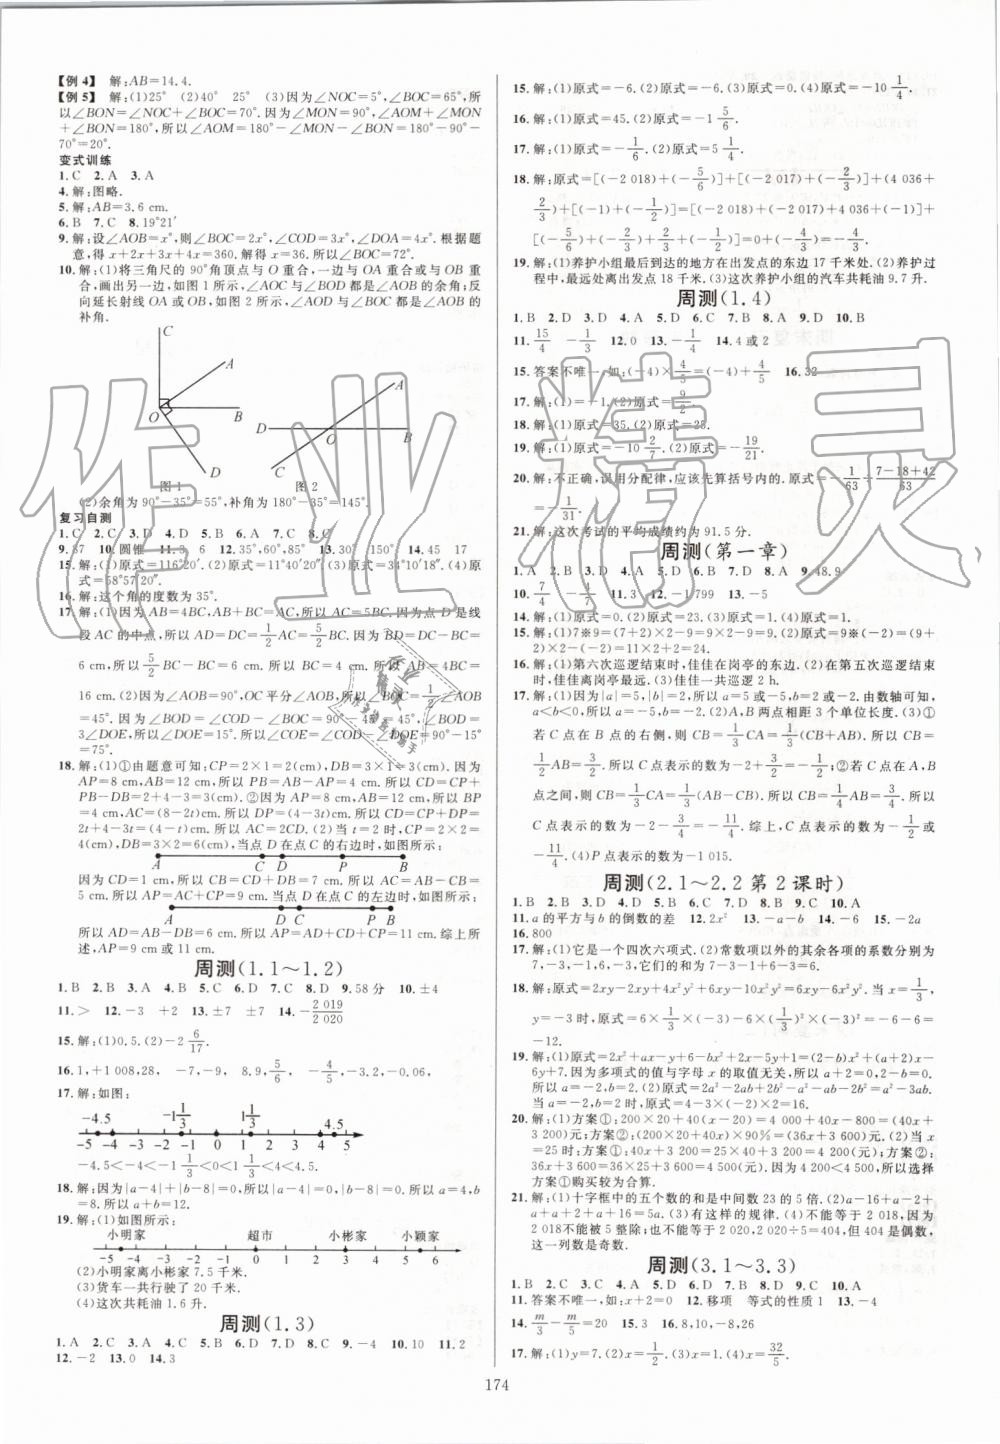 【例4】 解:AB=14.4.
【例5】 解:(1)25° (2)40° 25° (3)因为∠NOC=5°,∠BOC=65°,所
以∠BON=∠NOC+∠BOC=70°.因为∠MON=90°,∠AOM+∠MON
+∠BON=180°,所以∠AOM=180°-∠MON-∠BON=180°-90°-
70°=20°.
变式训练
1.C 2.A 3.A
4.解:图略.
5.解:AB=3.6 cm.
6.B 7.C 8.19°21′
9.解:设∠AOB=x°,则∠BOC=2x°,∠COD=3x°,∠DOA=4x°.根据题
意,得x+2x+3x+4x=360.解得x=36.所以∠BOC=72°.
10.解:(1)将三角尺的90°角顶点与O重合,一边与OA重合或与OB重
合,画出另一边,如图1所示,∠AOC与∠BOD都是∠AOB的余角;反
向延长射线OA或OB,如图2所示,∠AOD与∠BOC都是∠AOB的
补角.
C A O B D
A D O B C
图1 图2
(2)余角为90°-35°=55°,补角为180°-35°=145°.
复习自测
1.C 2.C 3.D 4.D 5.B 6.A 7.C 8.C
9.37 10.圆锥 11.5 6 12.35°,60°,85° 13.30° 150° 14.45 17
15.解:(1)原式=116°20′.(2)原式=11°40′20″.(3)原式=34°10′55″.(4)原
式=58°57′20″.
16.解:这个角的度数为35°.
17.解:(1)因为AB=4BC,AB+BC=AC,所以AC=5BC.因为点D是线
段AC的中点,所以AD=DC=1/2 AC=5/2 BC.因为BD=DC-BC=
6 cm,所以5/2 BC-BC=6 cm,所以BC=4 cm,所以AB=4BC=
16 cm.(2)因为∠AOB=90°,OC平分∠AOB,所以∠BOC=1/2∠AOB
=45°.因为∠BOD=∠COD-∠BOC=90°-45°=45°,∠BOD=
3∠DOE,所以∠DOE=15°,所以∠COE=∠COD-∠DOE=90°-15°
=75°.
18.解:(1)①由题意可知:CP=2×1=2(cm),DB=3×1=3(cm).因为
AP=8 cm,AB=12 cm,所以PB=AB-AP=4 cm.所以CD=CP+
PB-DB=2+4-3=3(cm).②因为AP=8 cm,AB=12 cm,所以BP
=4 cm,AC=(8-2t)cm.所以DP=(4-3t)cm.所以CD=CP+DP=
2t+4-3t=(4-t)cm.所以AC=2CD.(2)当t=2时,CP=2×2=
4(cm),DB=3×2=6(cm),当点D在点C的右边时,如图所示:
A C D P B
因为CD=1 cm,所以CB=CD+DB=7 cm.所以AC=AB-CB=
5 cm.所以AP=AC+CP=9 cm.当点D在点C的左边时,如图所示:
A D C P B
所以AD=AB-DB=6 cm.所以AP=AD+CD+CP=11 cm.综上所
述,AP=9 cm或11 cm.
周测(1.1~1.2)
1.B 2.B 3.A 4.B 5.C 6.D 7.C 8.D 9.58分 10.±4
11.> 12.-3 +2 13.±7 ±7 14.-2 019/2 020
15.解:(1)0.5.(2)-2 6/17.
16.1,+1 008,28, -7,-9, 8.9,5/6, -4/5,-3.2,-0.06,
17.解:如图:
-4.5 -1 1/3 1 1/3 4.5
-5 -4 -3 -2 -1 0 1 2 3 4 5
-4.5<-4<-1 1/3<0<1 1/3<4.5.
18.解:因为|a-4|+|b-8|=0,所以|a-4|=0,|b-8|=0.所以a=4,b
=8.所以a+b=12.
19.解:(1)如图所示:
小明家 超市 小彬家 小颖家
-5 -4 -3 -2 -1 0 1 2 3 4 5 6
(2)小明家离小彬家7.5千米.
(3)货车一共行驶了20千米.
(4)这次共耗油1.6升.
周测(1.3)
1.A 2.C 3.A 4.C 5.B 6.D 7.D 8.B 9.-4 10.1 11.2
12.-2 13.0 14.3
15.解:(1)原式=6.(2)原式=-6.(3)原式=0.(4)原式=-10 1/4.
16.解:(1)原式=45.(2)原式=-1 5/6.
17.解:(1)原式=-1/6.(2)原式=5 1/4.
18.解:原式=[(-2 018)+(-5/6)]+[(-2 017)+(-2/3)]+(4 036+
2/3)+[(-1)+(-1/2)]=[(-2 018)+(-2 017)+4 036+(-1)]
+[(-5/6)+(-2/3)+2/3+(-1/2)]=0+(-4/3)=-4/3.
19.解:(1)养护小组最后到达的地方在出发点的东边17千米处.(2)养护过
程中,最远处离出发点18千米.(3)这次养护小组的汽车共耗油9.7升.
周测(1.4)
1.B 2.D 3.D 4.A 5.D 6.C 7.B 8.A 9.D 10.B
11.15/4 -1/3 12.0 13.-1/3 14.4或2
15.答案不唯一,如:(-4)×4/5=(-4)+4/5 16.32
17.解:(1)=-1.(2)原式=9/2.
18.解:(1)原式=35.(2)原式=23.
19.解:(1)原式=-10 2/7.(2)原式=-19/21.
20.解:不正确,误用分配律,应该先算括号内的.原式=-1/63÷(7-18+42)/63
=-1/31.
21.解:这次考试的平均成绩约为91.5分.
周测(第一章)
1.A 2.B 3.A 4.C 5.B 6.D 7.B 8.A 9.48.9
10.7/4 -4/7 11.-3 12.-1 799 13.-5
14.解:(1)原式=0.(2)原式=23.(3)原式=1.(4)原式=1.
15.解:(1)7※9=(7+2)×2-9=9×2-9=9.(2)原式=9※(-2)=
(9+2)×2-(-2)=11×2+2=24.
16.解:(1)第六次巡逻结束时,佳佳在岗亭的东边.(2)在第五次巡逻结束
时,佳佳离岗亭最远.(3)佳佳一共巡逻2 h.
17.解:(1)因为|a|=5,|b|=2,所以a=5或-5,b=2或-2.由数轴可知,
a<b<0,所以a=-5,b=-2.(2)A,B两点相距3个单位长度.(3)①
若C点在B点的右侧,则CB=1/3 CA=1/3(CB+AB).所以CB=
1/2 AB=3/2.所以C点表示的数为-2+3/2=-1/2;②若C点在A,B
点之间,则CB=1/3 CA=1/3(AB-CB).所以CB=1/4 AB=3/4.所以
C点表示的数为-2-3/4=-11/4.综上,C点表示的数为-1/2或
-11/4.(4)P点表示的数为-1 015.
周测(2.1~2.2第2课时)
1.B 2.B 3.D 4.A 5.D 6.A 7.C 8.B 9.C 10.A
11.a的平方与b的倒数的差 12.2x² 13.-a-b 14.-6 15.-2a
16.800
17.解:(1)它是一个四次六项式.(2)常数项以外的其余各项的系数分别为
7,-3,-1,-6,-3,1,它们的和为7-3-1-6-3+1=-5.
18.解:原式=2xy-2xy+4x²y²+6xy-6x²y²=6xy-2x²y².当x=1/3,
y=-3时,原式=6×1/3×(-3)-2×(1/3)²×(-3)²=-6-2=-8.
19.解:(1)原式=2x²+ax-y+6-2bx²+3x-5y+1=(2-2b)x²+(a+
3)x-6y+7.因为多项式的值与字母x的取值无关,所以a+3=0,2-2b=0.
(2)原式=2a²-2ab+2b²-a²-ab-2b²=a²-3ab.
(3)原式=4-3×(-2)×2=16.
20.解:(1)方案①:200×20+40(x-20)=4 000+40x-800=(40x+
3 200)元;方案②:(200×20+40x)×90%=(36x+3 600)元.(2)当x
=25时:方案①:40x+3 200=25×40+3 200=4 200(元);方案②:
36x+3 600=36×25+3 600=4 500(元).因为4 200<4 500,所以选择
方案①购买较为合算.
21.解:(1)十字框中的五个数的和是中间数23的5倍.(2)a-16+a-2+
a+a+2+a+16=5a.(3)有这样的规律.(4)不能等于2 018,因为2 018
不能被5整除;也不能等于2 020,2 020÷5=404,但404是偶数,
这一列数是奇数.
周测(3.1~3.3)
1.B 2.C 3.C 4.A 5.D 6.D 7.B 8.D 9.C 10.A
11.答案不唯一,如:x+2=0 12.移项 等式的性质1 13.-4
14.m/3-m/5=20 15.3 16.8,10,-8,26
17.解:(1)y=7.(2)x=1/2.(3)x=1.(4)x=32/5.
174